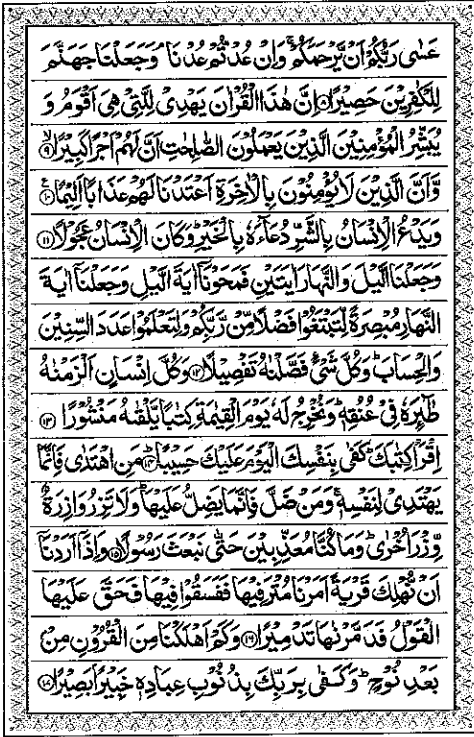 عَسٰى رَبُّكُمْ اَنْ يَّرْحَمَكُمْ ۚ وَاِنْ عُدْتُّمْ عُدْنَا ۘ وَجَعَلْنَا جَهَنَّمَ
لِلْكٰفِرِيْنَ حَصِيْرًا ۝۸ اِنَّ هٰذَا الْقُرْاٰنَ يَهْدِىْ لِلَّتِىْ هِىَ اَقْوَمُ وَ
يُبَشِّرُ الْمُؤْمِنِيْنَ الَّذِيْنَ يَعْمَلُوْنَ الصّٰلِحٰتِ اَنَّ لَهُمْ اَجْرًا كَبِيْرًا ۙ۝۹
وَّاَنَّ الَّذِيْنَ لَا يُؤْمِنُوْنَ بِالْاٰخِرَةِ اَعْتَدْنَا لَهُمْ عَذَابًا اَلِيْمًا ۝۱۰
وَيَدْعُ الْاِنْسَانُ بِالشَّرِّ دُعَآءَهٗ بِالْخَيْرِ ؕ وَكَانَ الْاِنْسَانُ عَجُوْلًا ۝۱۱
وَجَعَلْنَا الَّيْلَ وَالنَّهَارَ اٰيَتَيْنِ فَمَحَوْنَاۤ اٰيَةَ الَّيْلِ وَجَعَلْنَاۤ اٰيَةَ
النَّهَارِ مُبْصِرَةً لِّتَبْتَغُوْا فَضْلًا مِّنْ رَّبِّكُمْ وَلِتَعْلَمُوْا عَدَدَ السِّنِيْنَ
وَالْحِسَابَ ؕ وَكُلَّ شَىْءٍ فَصَّلْنٰهُ تَفْصِيْلًا ۝۱۲ وَكُلَّ اِنْسَانٍ اَلْزَمْنٰهُ
طٰٓئِرَهٗ فِىْ عُنُقِهٖ ؕ وَنُخْرِجُ لَهٗ يَوْمَ الْقِيٰمَةِ كِتٰبًا يَّلْقٰىهُ مَنْشُوْرًا ۝۱۳
اِقْرَاْ كِتٰبَكَ ؕ كَفٰى بِنَفْسِكَ الْيَوْمَ عَلَيْكَ حَسِيْبًا ؕ۝۱۴ مَنِ اهْتَدٰى فَاِنَّمَا
يَهْتَدِىْ لِنَفْسِهٖ ۚ وَمَنْ ضَلَّ فَاِنَّمَا يَضِلُّ عَلَيْهَا ؕ وَلَا تَزِرُ وَازِرَةٌ
وِّزْرَ اُخْرٰى ؕ وَمَا كُنَّا مُعَذِّبِيْنَ حَتّٰى نَبْعَثَ رَسُوْلًا ۝۱۵ وَاِذَاۤ اَرَدْنَاۤ
اَنْ نُّهْلِكَ قَرْيَةً اَمَرْنَا مُتْرَفِيْهَا فَفَسَقُوْا فِيْهَا فَحَقَّ عَلَيْهَا
الْقَوْلُ فَدَمَّرْنٰهَا تَدْمِيْرًا ۝۱۶ وَكَمْ اَهْلَكْنَا مِنَ الْقُرُوْنِ مِنْۢ
بَعْدِ نُوْحٍ ؕ وَكَفٰى بِرَبِّكَ بِذُنُوْبِ عِبَادِهٖ خَبِيْرًۢا بَصِيْرًا ۝۱۷